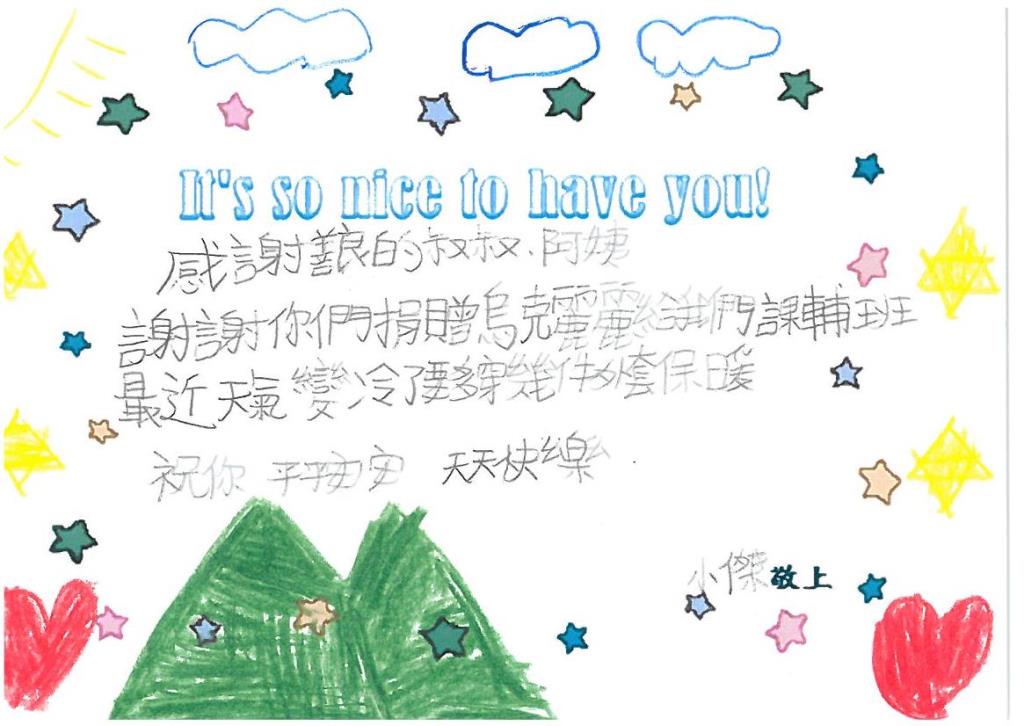 It's so nice to have you!
感謝善良的叔叔、阿姨
謝謝你們捐贈烏克麗麗給我們課輔班
最近天氣變冷了要多穿幾件外套保暖
祝你 平平安安 天天快樂
小傑敬上